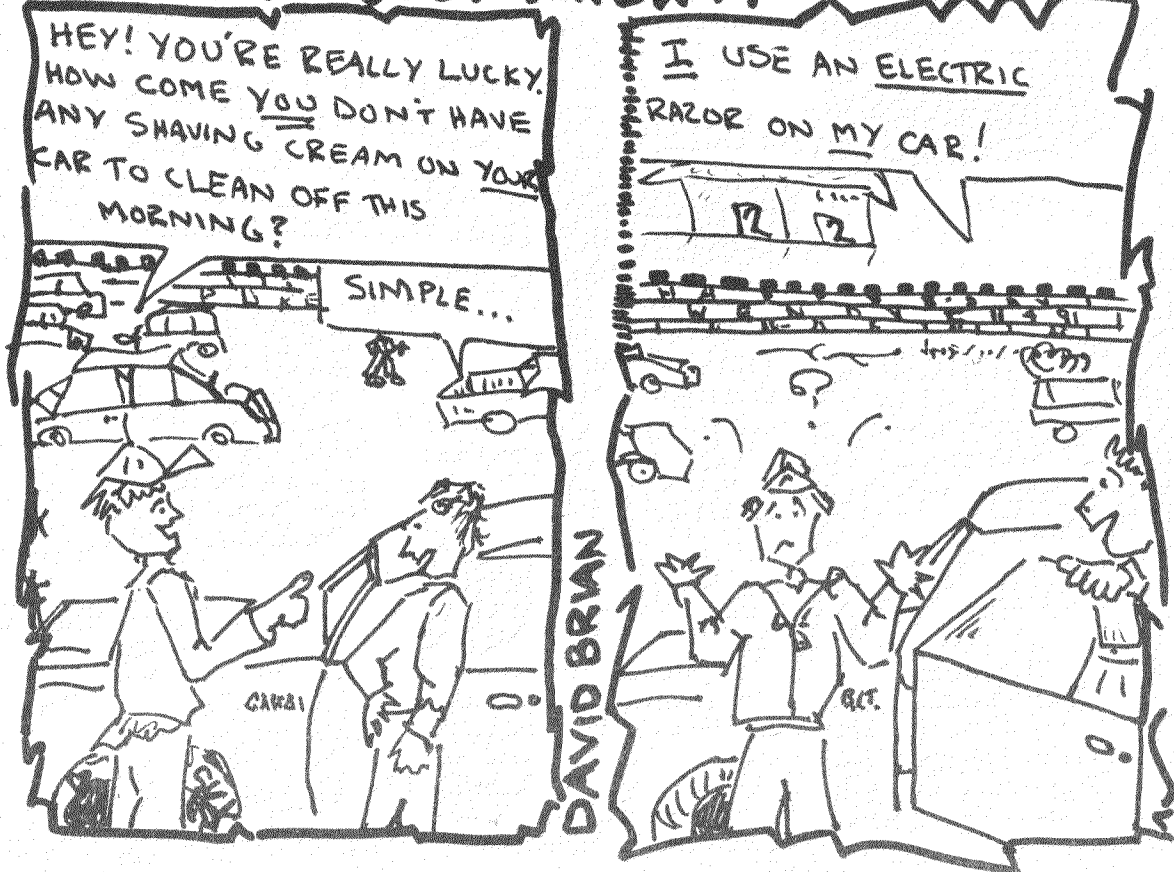 HEY! YOU'RE REALLY LUCKY.
HOW COME YOU DON'T HAVE
ANY SHAVING CREAM ON YOUR
CAR TO CLEAN OFF THIS
MORNING?
SIMPLE...
DAVID BRWAN
I USE AN ELECTRIC
RAZOR ON MY CAR!